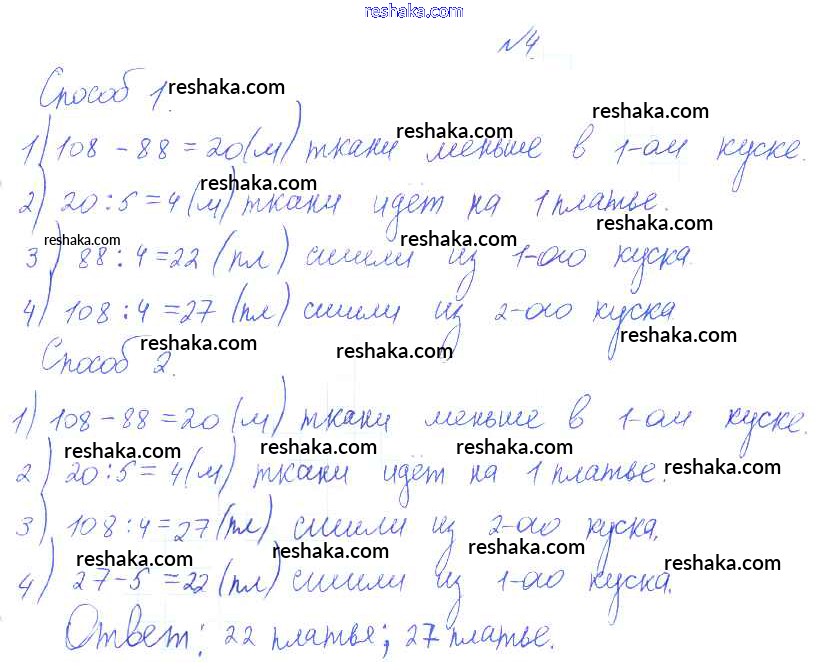 reshaka.com
№4
Способ 1. reshaka.com
reshaka.com
1) 108 - 88 = 20 (м) ткани меньше в 1-ом куске.
reshaka.com
reshaka.com
2) 20 : 5 = 4 (м) ткани идёт на 1 платье.
reshaka.com
reshaka.com reshaka.com
3) 88 : 4 = 22 (пл) сшили из 1-ого куска.
4) 108 : 4 = 27 (пл) сшили из 2-ого куска.
reshaka.com reshaka.com reshaka.com
Способ 2.
1) 108 - 88 = 20 (м) ткани меньше в 1-ом куске.
reshaka.com reshaka.com reshaka.com
2) 20 : 5 = 4 (м) ткани идёт на 1 платье. reshaka.com
3) 108 : 4 = 27 (пл) сшили из 2-ого куска.
reshaka.com reshaka.com reshaka.com reshaka.com
4) 27 - 5 = 22 (пл) сшили из 1-ого куска.
Ответ: 22 платье; 27 платье.